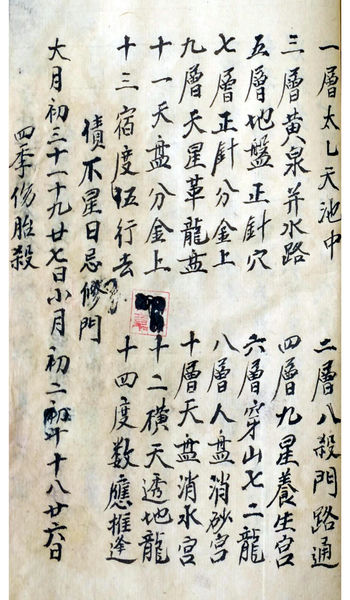 一層太乙天池中 二層八殺門路通
三層黃泉并水路 四層九星養生宮
五層地盤正針穴 六層穿山七二龍
七層正針分金上 八層人盘消砂宮
九層天星革龍盘 十層天盘消水宮
十一天盘分金上 十二横天透地龍
十三宿度伍行去 十四度数應推逢
債不星日忌修門
大月初三十一十九廿七日小月初二初十十八廿六日
四季伤胎殺